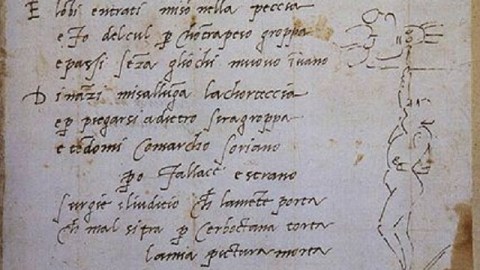 E lobi entrati miso nella peccia
e fo del cul p chotrapeso groppa
e passi seza gliochi muovo ivano
Dinazi misalluga lachorteccia
e p piegarsi adietro siragroppa
e tedomi comarcho soriano
po fallace e strano
surgie iliudicio ch lamete porta
ch mal sitra p cerboctana torta
lamia pictura morta